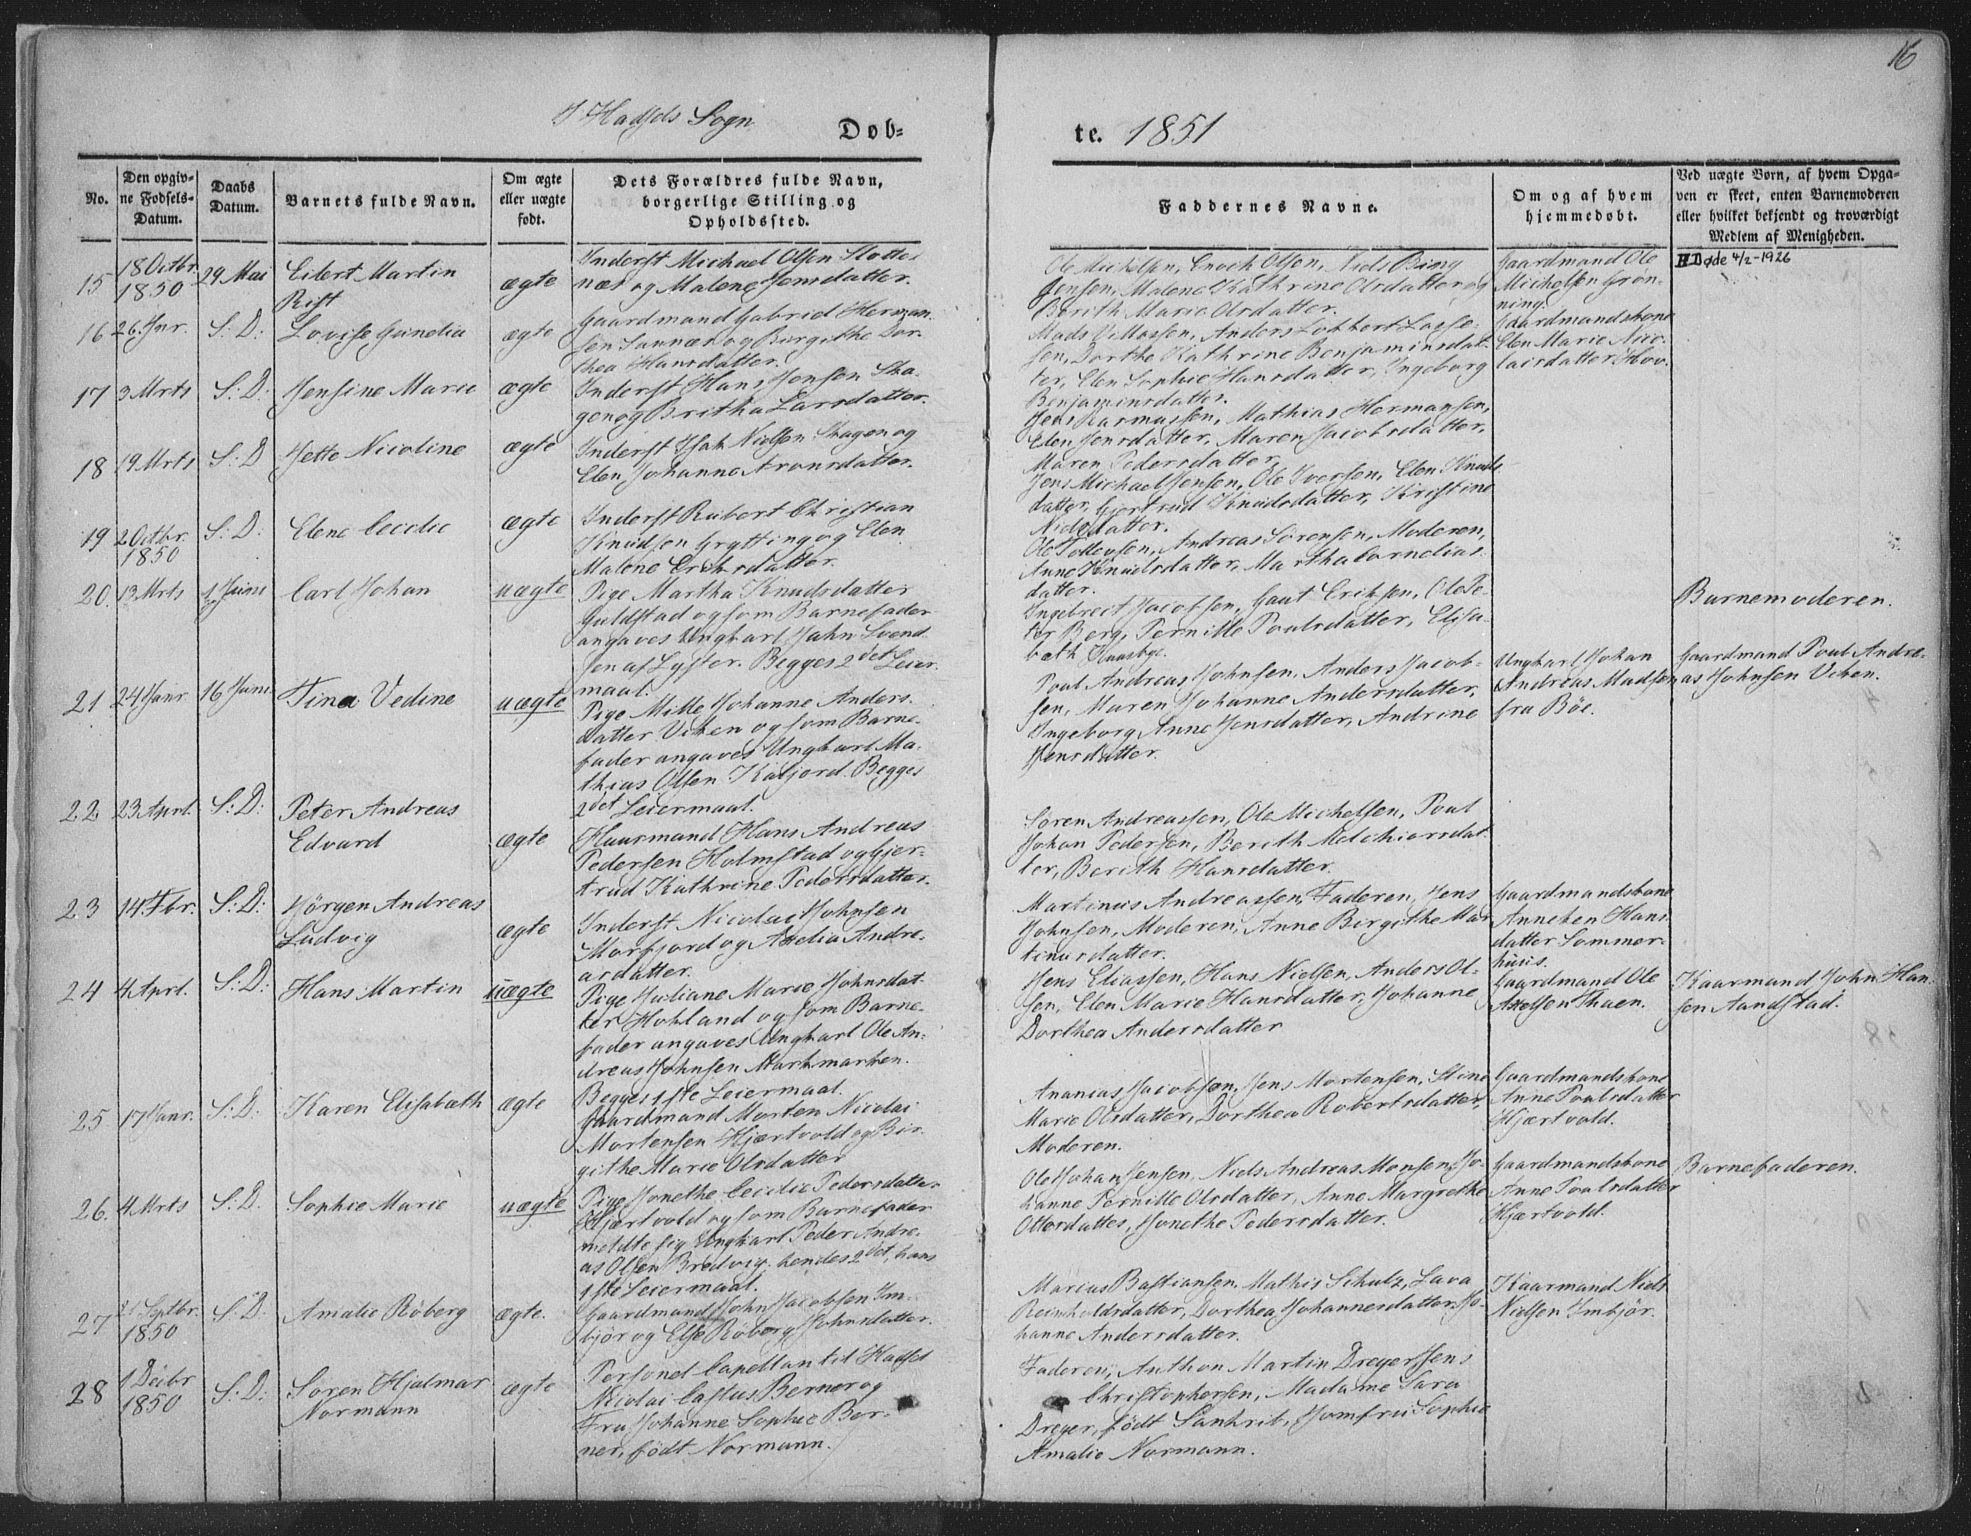 16
I Hadsels Sogn
Døb=
te. 1851
No.
Den opgiv=
ne Fødsels=
Datum.
Daabs
Datum.
Barnets fulde Navn.
Om ægte
eller uægte
født.
Dets Forældres fulde Navn,
borgerlige Stilling og
Opholdssted.
Faddernes Navne.
Om og af hvem
hjemmedøbt.
Ved uægte Børn, af hvem Opga=
ven er skeet, enten Barnemoderen
eller hvilket bekjendt og troværdigt
Medlem af Menigheden.
15
18 Octbr.
1850
29 Mai
Eilert Martin
Rist
ægte
Inderst Michael Olsen Slottes
næs og Malene Jensdatter.
Ole Michelsen, Enoch Olsen, Niels Bing
Jensen, Malene Kathrine Olsdatter og
Berith Marie Olsdatter.
Gaardmand Ole
Michelsen Grøn-
ning.
Døde 4/2-1926
16
26 Jnr.
S: D:
Lovise Gunelia
ægte
Gaardmand Gabriel Herman-
sen Sannæs og Birgithe Dor-
thea Hansdatter.
Mads Villassen, Anders Lobbert Lasse-
sen, Dorthe Kathrine Benjaminsdat-
ter, Elen Sophie Hansdatter, Ingeborg
Benjaminsdatter.
Gaardmandskone
Elen Marie Nico-
laisdatter Hov.
17
3 Mrts
S: D:
Jensine Marie
ægte
Inderst Hans Jensen Ska-
gen og Britha Larsdatter.
Jens Rasmussen, Mathias Hermansen,
Elen Jensdatter, Maren Jacobsdatter,
Maren Pedersdatter
18
19 Mrts
S: D
Jette Nicoline
ægte
Inderst Isak Nielsen Skagen og
Elen Johanna Aronsdatter.
Jens Michael Jensen, Ole Iversen, Elen Knuds
datter, Gjertrud Knudsdatter, Kristine
Nielsdatter.
19
2 Octbr.
1850
S: D:
Elene Cecilie
ægte
Inderst Rubert Christian
Knudsen Grytting og Elen
Malene Eriksdatter.
Ole Tollevsen, Andreas Sörensen, Moderen,
Anne Knudsdatter, Martha Cornelias-
datter.
20.
13 Mrts
1 Juni
Carl Johan
uægte
Pige Martha Knudsdatter
Guldstad og som Barnefader
angaves Ungkarl John Svend
sen af Lyster. Begges 2det Leier-
maal.
Ingebret Jacobsen, Gaut Eriksen, Ole Pe-
ter Berg, Pernille Poulsdatter, Elisa-
beth Quasbye.
Barnemoderen.
21
24 Janr.
16 Juni
Tina Vedine
uægte
Pige Mille Johanne Anders-
datter Viken og som Barne-
fader angaves Ungkarl Ma-
thias Olsen Kaljord. Begges
2det Leiermaal.
Poul Andreas Johnsen, Anders Jacob-
sen, Maren Johanne Andersdatter,
Ingeborg Anne Jensdatter, Andrine
Jensdatter.
Ungkarl Johan
Andreas Madsen
fra Böe.
Gaardmand Poul Andre-
as Johnsen Viken.
22
23 Aprl.
S: D:
Peter Andreas
Edvard
ægte
Huusmand Hans Andreas
Pedersen Holmstad og Gjer-
trud Kathrine Pedersdatter.
Sören Andreassen, Ole Michelsen, Poul
Johan Pedersen, Berith Melchiorsdat-
ter, Berith Hansdatter.
23
14 Fbr.
S: D:
Jörgen Andreas
Ludvig
ægte
Inderst Nicolai Johnsen
Morfjord og Axelia Andre-
asdatter.
Martinus Andreassen, Faderen, Jens
Johnsen, Moderen, Anne Birgithe Mar-
tinusdatter.
Gaardmandskone
Anneken Hans-
datter Sommer-
huus.
24
4 Aprl.
S: D:
Hans Martin
uægte
Pige Juliane Marie Johnsdat-
ter Hokland og som Barne-
fader angaves Ungkarl Ole An-
dreas Johnsen Markmarken.
Begges 1ste Leiermaal.
Jens Eliassen, Hans Nielsen, Anders Ol-
sen, Elen Marie Hansdatter, Johanne
Dorthea Andersdatter
Gaardmand Ole
Axelsen Thaen.
Kaarmand John Han-
sen Aandstad.
25
17 Janr.
S: D:
Karen Elisabeth
ægte
Gaardmand Morten Nicolai
Mortensen Hjertvold og Bir-
githe Marie Olsdatter
Ananias Jacobsen, Jens Mortensen, Stine
Marie Olsdatter, Dorthea Robertsdatter,
Moderen.
Gaardmandskone
Anne Poulsdatter
Hjærtvold.
26.
4 Mrts
S: D.
Sophie Marie
uægte
Pige Jonethe Cecilie Pedersdatter
Hjærtvold og som Barnefader
meldte sig Ungkarl Peder Andre-
as Olsen Bredvig. hendes 2det, hans
1ste Leiermaal.
Ole Johan Jensen, Niels Andreas Monsen, Jo-
hanne Pernille Olsdatter, Anne Margrethe
Ottersdatter, Jonethe Pedersdatter.
Gaardmandskone
Anne Poulsdatter
Hjærtvold.
Barnefaderen.
27
Septbr.
1850
S: D.
Amalie Röberg
ægte.
Gaardmand John Jacobsen Im-
björ og Else Röberg Johnsdatter.
Marius Bastiansen, Mathis Schulz, Lava
Reinholdsdatter, Dorthea Johannesdatter, Jo-
hanne Andersdatter.
Kaarmand Niels
Nielsen Imbjör.
28
1 Decbr
1850
S: D:
Sören Hjalmar
Normann
ægte
Personel Capellan til Hadsel
Nicolai Castus Berner og
Fru Johanne Sophie Ber-
ner, födt Normann.
Faderen, Anthon Martin Dreyer, Jens
Christophersen, Madame Sara
Dreyer, födt Lankrit, Jomfru Sophie
Amalie Normann.